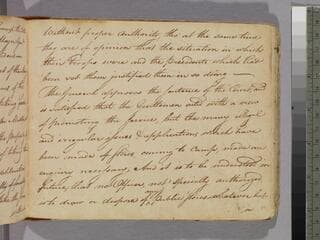 without proper Authority tho at the same time
they are of opinion that the situation in which
their Troops were and the Precedents which had
been set them justified them in so doing —
The General approves the sentence of the Court and
is satisfied that the Gentlemen acted with a view
of promoting the service, but the many illegal
and irregular applications which have
been made of Stores coming to Camp, made an
enquiry necessary, And it is to be understood in
future, that no Officer not specially authorized
is to draw or dispose of any Public Stores whatever but